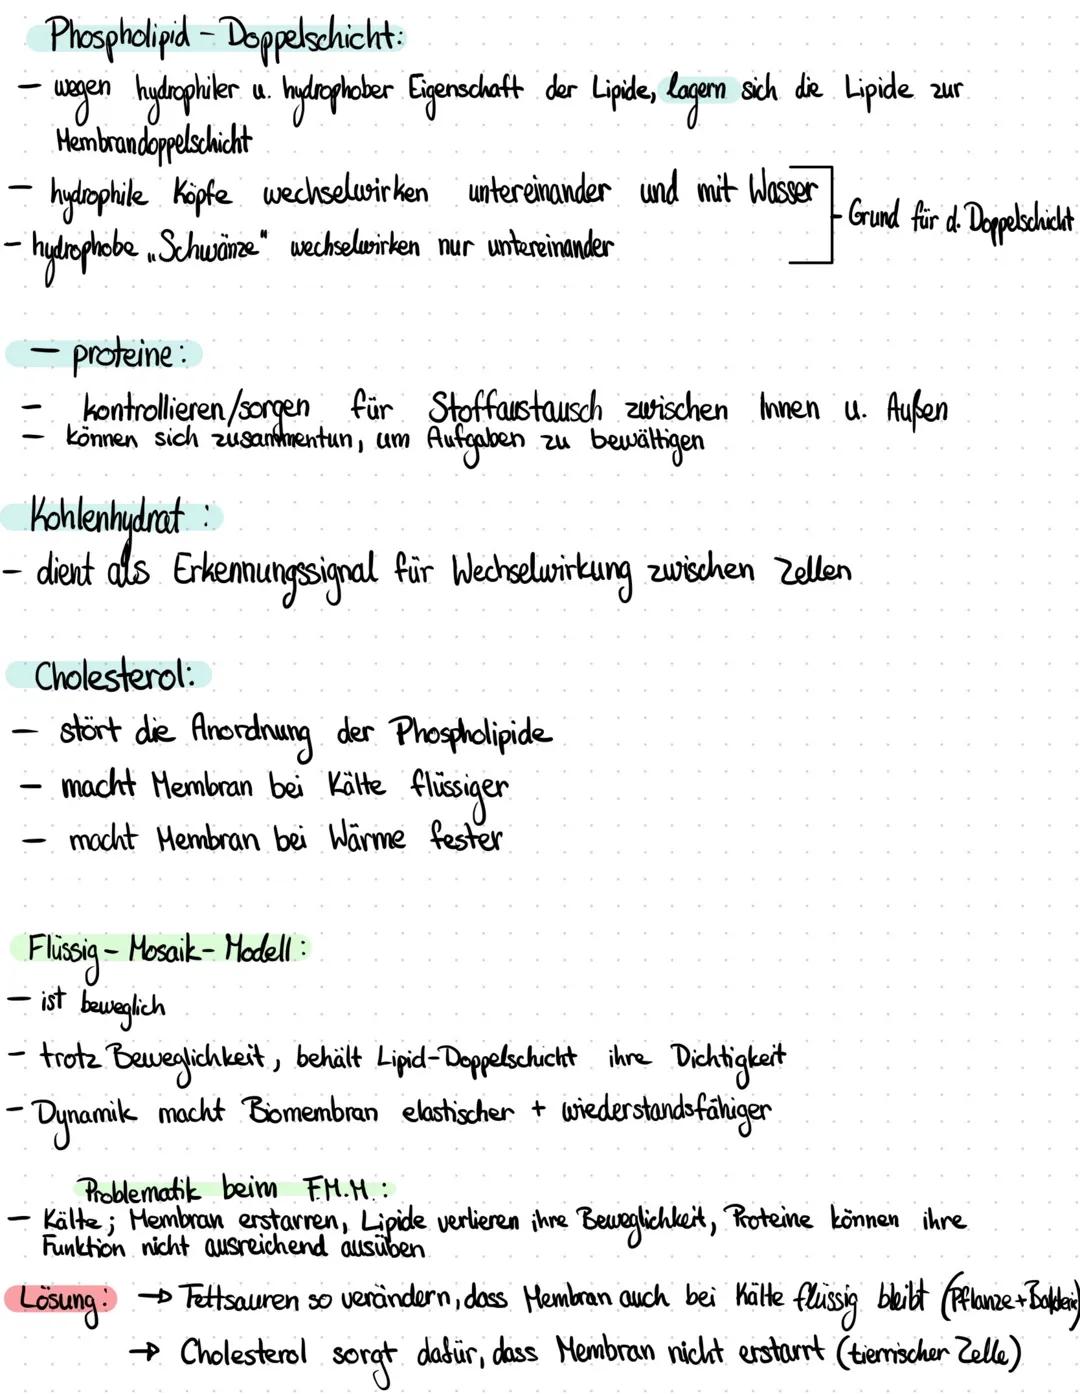 Phospholipid - Doppelschicht:
- wegen hydrophiler u. hydrophober Eigenschaft der Lipide, lagern sich die Lipide zur
Membrandoppelschicht
- hydrophile Köpfe wechselwirken untereinander und mit Wasser
- hydrophobe „Schwänze" wechselwirken nur untereinander
Grund für d. Doppelschicht
- proteine:
- kontrollieren/sorgen für Stoffaustausch zwischen Innen u. Außen
- können sich zusammentun, um Aufgaben zu bewältigen
Kohlenhydrat :
- dient als Erkennungssignal für Wechselwirkung zwischen Zellen
Cholesterol:
- stört die Anordnung der Phospholipide
- macht Membran bei Kälte flüssiger
- macht Membran bei Wärme fester
Flüssig - Mosaik - Modell :
- ist beweglich
- trotz Beweglichkeit, behält Lipid-Doppelschicht ihre Dichtigkeit
- Dynamik macht Biomembran elastischer + wiederstandsfähiger
Problematik beim F.M.M. :
- Kälte ; Membran erstarren, Lipide verlieren ihre Beweglichkeit, Proteine können ihre
Funktion nicht ausreichend ausüben
Lösung : → Fettsauren so verändern, dass Membran auch bei Kälte flüssig bleibt (Pflanze + Bakterie)
→ Cholesterol sorgt dafür, dass Membran nicht erstarrt (tierrischer Zelle)